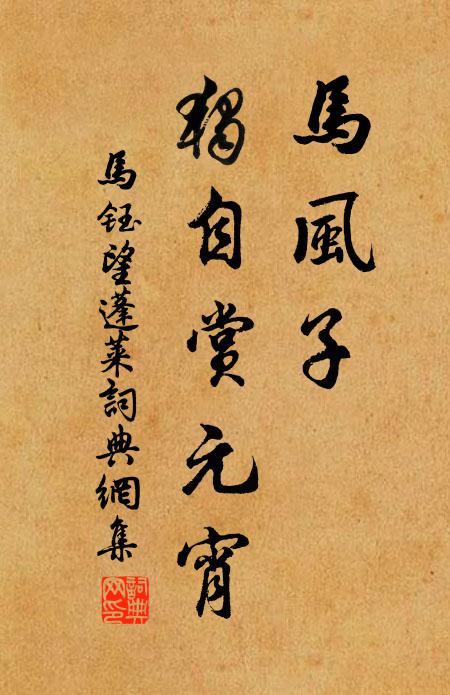 馬風子
獨自賞元宵
馬鈺望蓬萊詞典網集
詞典
网印